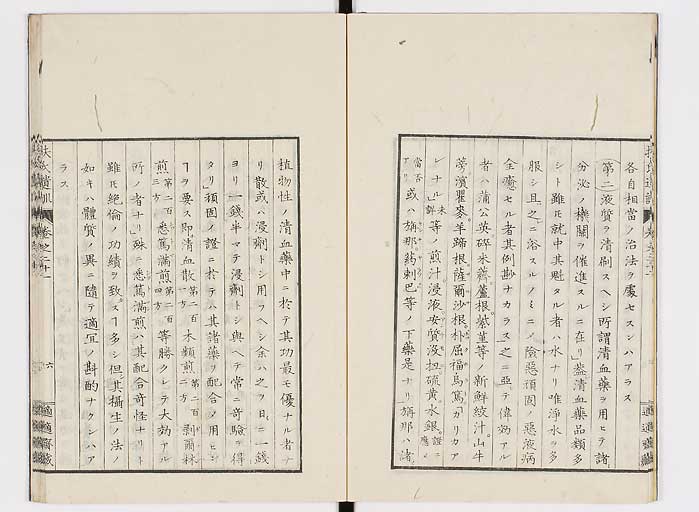 各自相當ノ治法ヲ處セスンハアラス
第二液質ヲ清刷スヘシ所謂清血藥ヲ用ヒテ諸
分泌ノ機關ヲ催進スルニ在リ蓋清血藥品類多
シト雖モ就中其魁タル者ハ水ナリ唯淨水ヲ多
服シ且之ニ浴スルノミニノ陰惡頑固ノ惡液病
全癒セル者其例尠ナカラス之ニ亞テ偉効アル
者ハ蒲公英碎米薺蘆根菫等ノ新鮮絞汁山牛
蒡濱瞿麥羊蹄根薩爾沙根朴屈福烏篤
シナル等ノ煎汁浸液安質没扭硫黄水銀證ニ應シ
當否アリ或ハ旃那葯刺巴等ノ下藥是ナリ旃那ハ諸
植物性ノ清血藥中ニ於テ其功最モ優ナル者ナ
リ散或ハ浸劑トシ用ヲヘシ余ハ之ヲ日ニ一錢
ヨリ一錢半マテ浸劑トシ與ヘテ常ニ奇驗ヲ得
タリ頑固ノ證ニ於テハ其諸藥ヲ配合ノ用ヒン
ヿヲ要ス即清血散第二百一方木纈煎第二百二方剥爾林
煎第二百三方悉篤滿煎第二百四方等勝クレテ大効アル
所ノ者ナリ殊ニ悉篤滿煎ハ其配合奇怪ナリト
雖モ絶倫ノ功績ヲ致スヿ多シ但其攝生ノ法ノ
如キハ體質ノ異ニ隨テ適宜ノ斟酌ナクンハア
ラス
扶氏遺訓
卷之二十一
六
適適齋藏